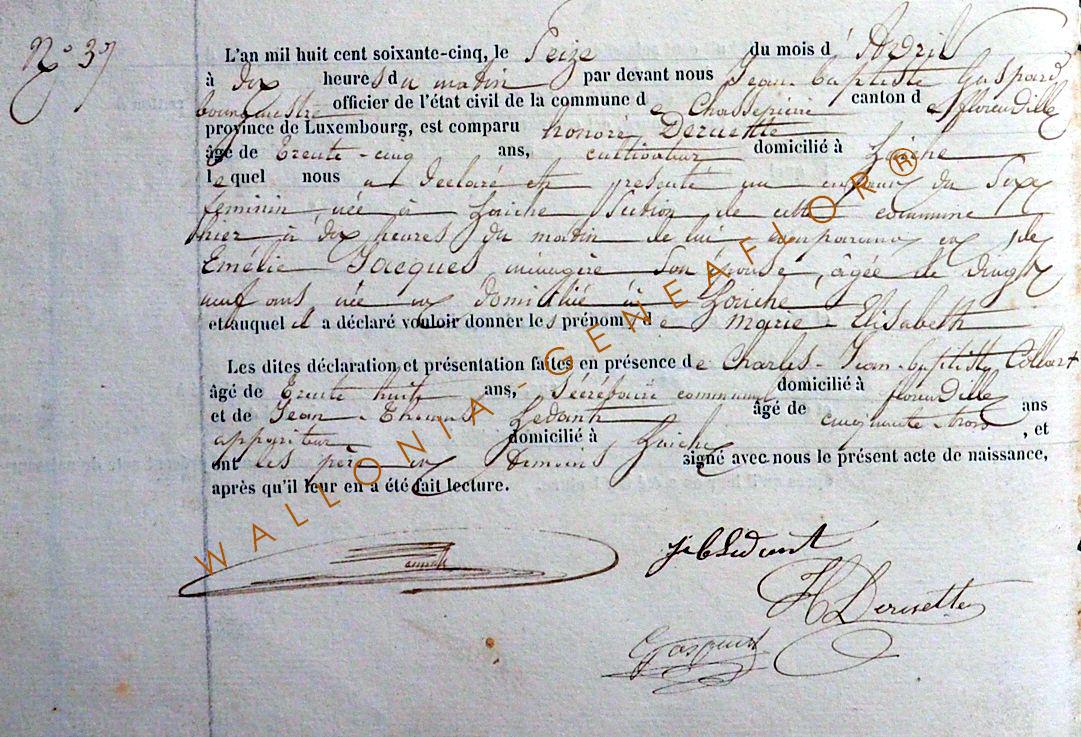 N° 37
L'an mil huit cent soixante-cinq, le Seize du mois d' Avril
à dix heures du matin par devant nous Jean Baptiste Gaspard
bourgmestre officier de l'état civil de la commune de Chassepierre canton de florenville
province de Luxembourg, est comparu honoré Deruette
âgé de Trente-cinq ans, cultivateur domicilié à Laiche
lequel nous a déclaré et présenté un enfant du Sexe
féminin née à Laiche Section de cette commune
hier à dix heures du matin de lui comparant et de
Emélie Jacques ménagère Son épouse, âgée de vingt
neuf ans née et domiciliée à Laiche
et auquel il a déclaré vouloir donner les prénoms de marie-Elisabeth
Les dites déclaration et présentation faites en présence de Charles-Jean-baptiste Collart
âgé de Trente huit ans, Sécrétaire communal domicilié à florenville
et de Jean-Thomas Ledant âgé de cinquante-trois ans
appariteur domicilié à Laiche, et
ont les père et témoins signé avec nous le présent acte de naissance,
après qu'il leur en a été fait lecture.
Ledant
H Deruette
Gaspard
WALLONIA - GENEAFLOR®